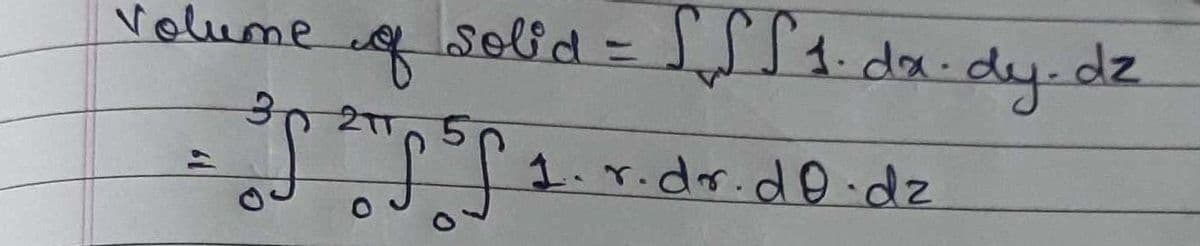 Volume of solid = ∫∫∫ 1. dx. dy. dz
= ₀∫³ ₀∫²π ₀∫⁵ 1. r. dr. dθ. dz